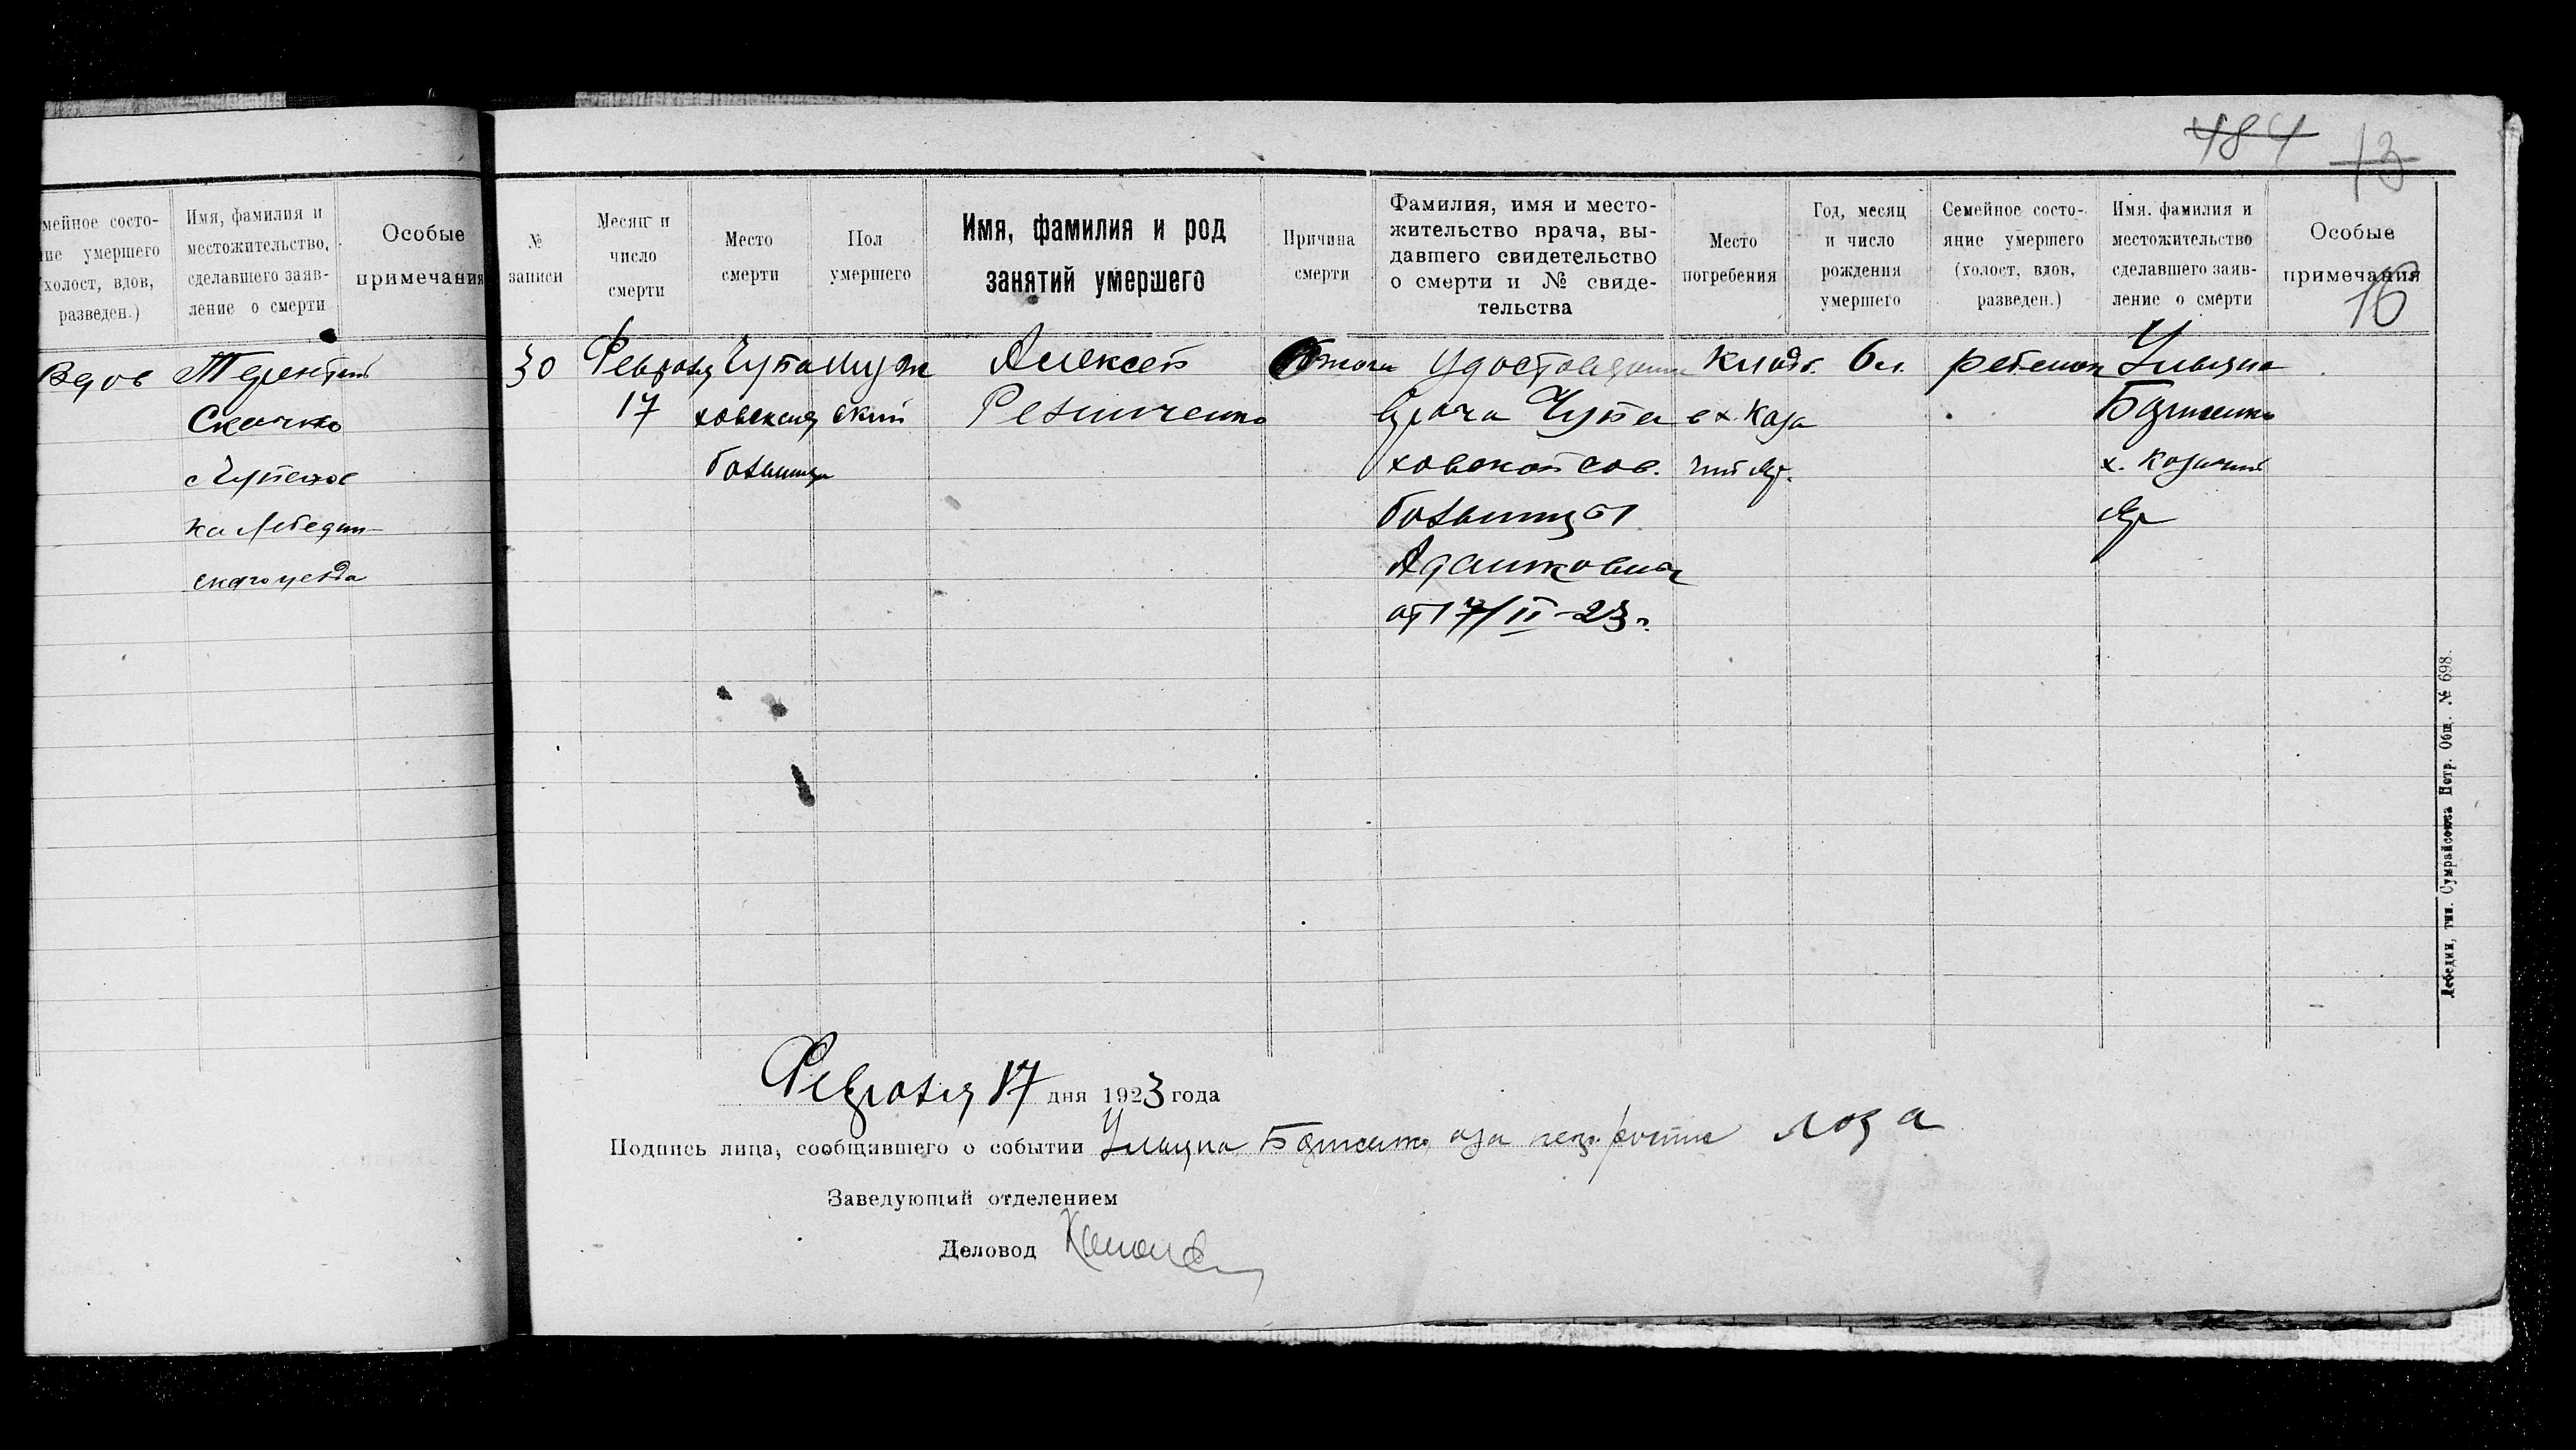 484 13
16
мейное состо-
ние умершего
(холост, вдов,
разведен.)
Имя, фамилия и
местожительство,
сделавшего заяв-
ление о смерти
Особые
примечания
Вдов
Терентий
Скачко
с Чупахов
ка Лебедин-
скаго уезда
№
записи
Месяц и
число
смерти
Место
смерти
Пол
умершего
Имя, фамилия и род
занятий умершего
Причина
смерти
Фамилия, имя и место-
жительство врача, вы-
давшего свидетельство
о смерти и № свиде-
тельства
Место
погребения
Год, месяц
и число
рождения
умершего
Семейное состо-
яние умершего
(холост, вдов,
разведен.)
Имя. фамилия и
местожительство
сделавшего заяв-
ление о смерти
Особые
примечания
30
Февраля
17
Чупа
ховская
больница
муж
ский
Алексей
Резниченко
Ожоги
Удостоверение
врача Чупа
ховской сов.
больницы
от 17/II-23 г.
кладб.
в х. Каза
чий Яр.
6 л.
ребенок
Ульяна
х. Казачий
Яр
Февраля 17 дня 1923 года
Подпись лица, сообщившего о событии Ульяна
Заведующий отделением
Деловод
Лебедин, тип. Сумрайсоюза Потр. Общ. № 698.